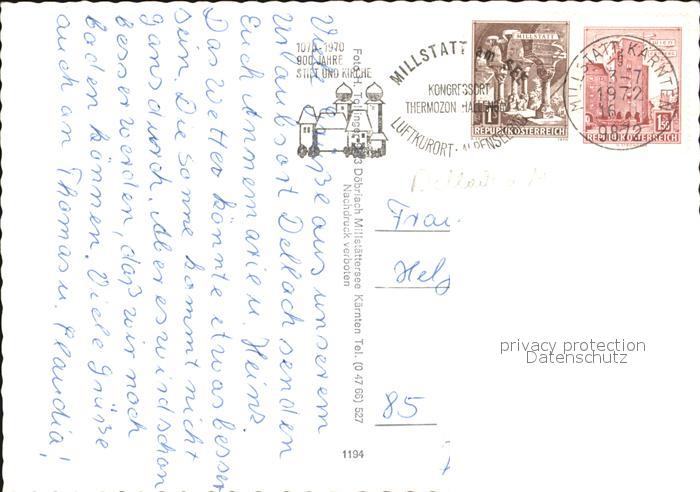 Viele Grüße aus unserem
Urlaubsort Dellach senden
Euch Annemarie u. Heinz.
Das Wetter könnte etwas besser
sein. Die Sonne kommt nicht
ganz durch. Aber es wird schon
besser werden, daß wir noch
baden können. Viele Grüße
auch an Thomas u. Claudia!
1070-1970
900 JAHRE
STIFT UND KIRCHE
MILLSTATT am SEE
KONGRESSORT
THERMOZON HALLENBAD
LUFTKURORT - ALPENSEE
MILLSTATT
1S
REPUBLIK ÖSTERREICH
1.50
REPUBLIK ÖSTERREICH
MILLSTATT, KÄRNTEN
-7
1972
16
9872
Döbriach Millstättersee Kärnten Tel. (0 47 66) 527
Nachdruck verboten
1194
Frau
Helg
85
privacy protection
Datenschutz